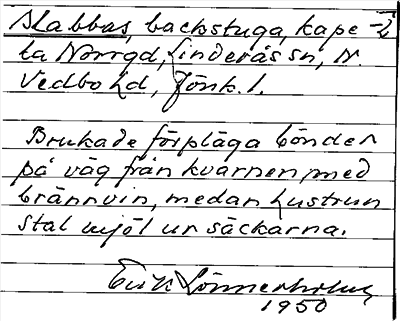 Slabbas, backstuga, kape-
ta Norrgd, Linderås sn, N.
Vedbo hd, Jönk. l.
Brukade förpläga bönder
på väg från kvarnen, med
brännvin, medan hustrun
stal mjöl ur säckarna.
Erik Lönnerholm
1950